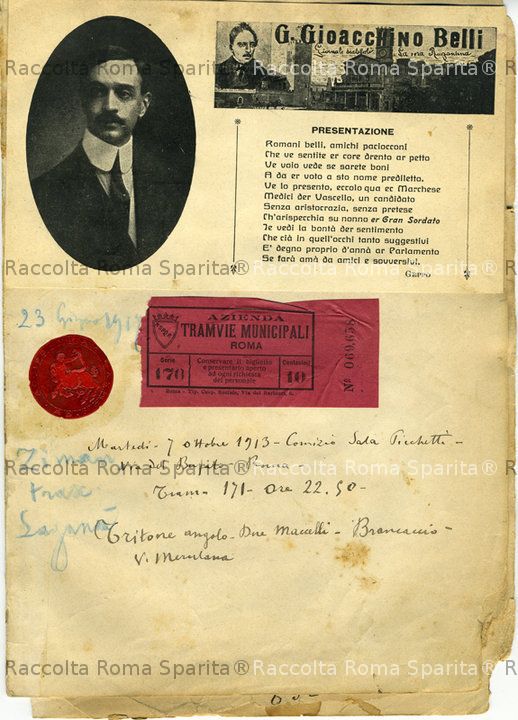 G. Gioacchino Belli
PRESENTAZIONE
Romani belli, amichi paciocconi
Che ve sentite er core drento ar petto
Ve vojo vede se sarete boni
A da er voto a sto nome prediletto.
Ve lo presento, eccolo qua er Marchese
Medici der Vascello, un candidato
Senza aristocrazia, senza pretese
Ch'arispecchia su nonno er Gran Sordato
Je vedi la bontà der sentimento
Che cià in quell'occhi tanto suggestivi
E' degno proprio d'annà ar Parlamento
Se farà amà da amici e sovversivi.
GEPPO
Raccolta Roma Sparita® Raccolta Roma Sparita® Raccolta Roma Sparita®
Raccolta Roma Sparita® Raccolta Roma Sparita® Raccolta Roma Sparita®
23
AZIENDA
TRAMVIE MUNICIPALI
ROMA
Serie
170
Conservare il biglietto
e presentarlo aperto
ad ogni richiesta
del personale
Centesimi
10
Nº 060,658
Martedì - 7 ottobre 1913 - Comizio Sala Picchetti -
Via del Bufalo - Roma -
Tram - 171 - ore 22.50 -
Tritone angolo - Due Macelli - Brancaccio -
V. Merulana
Raccolta Roma Sparita® Raccolta Roma Sparita® Raccolta Roma Sparita®
Raccolta Roma Sparita® Raccolta Roma Sparita® Raccolta Roma Sparita®